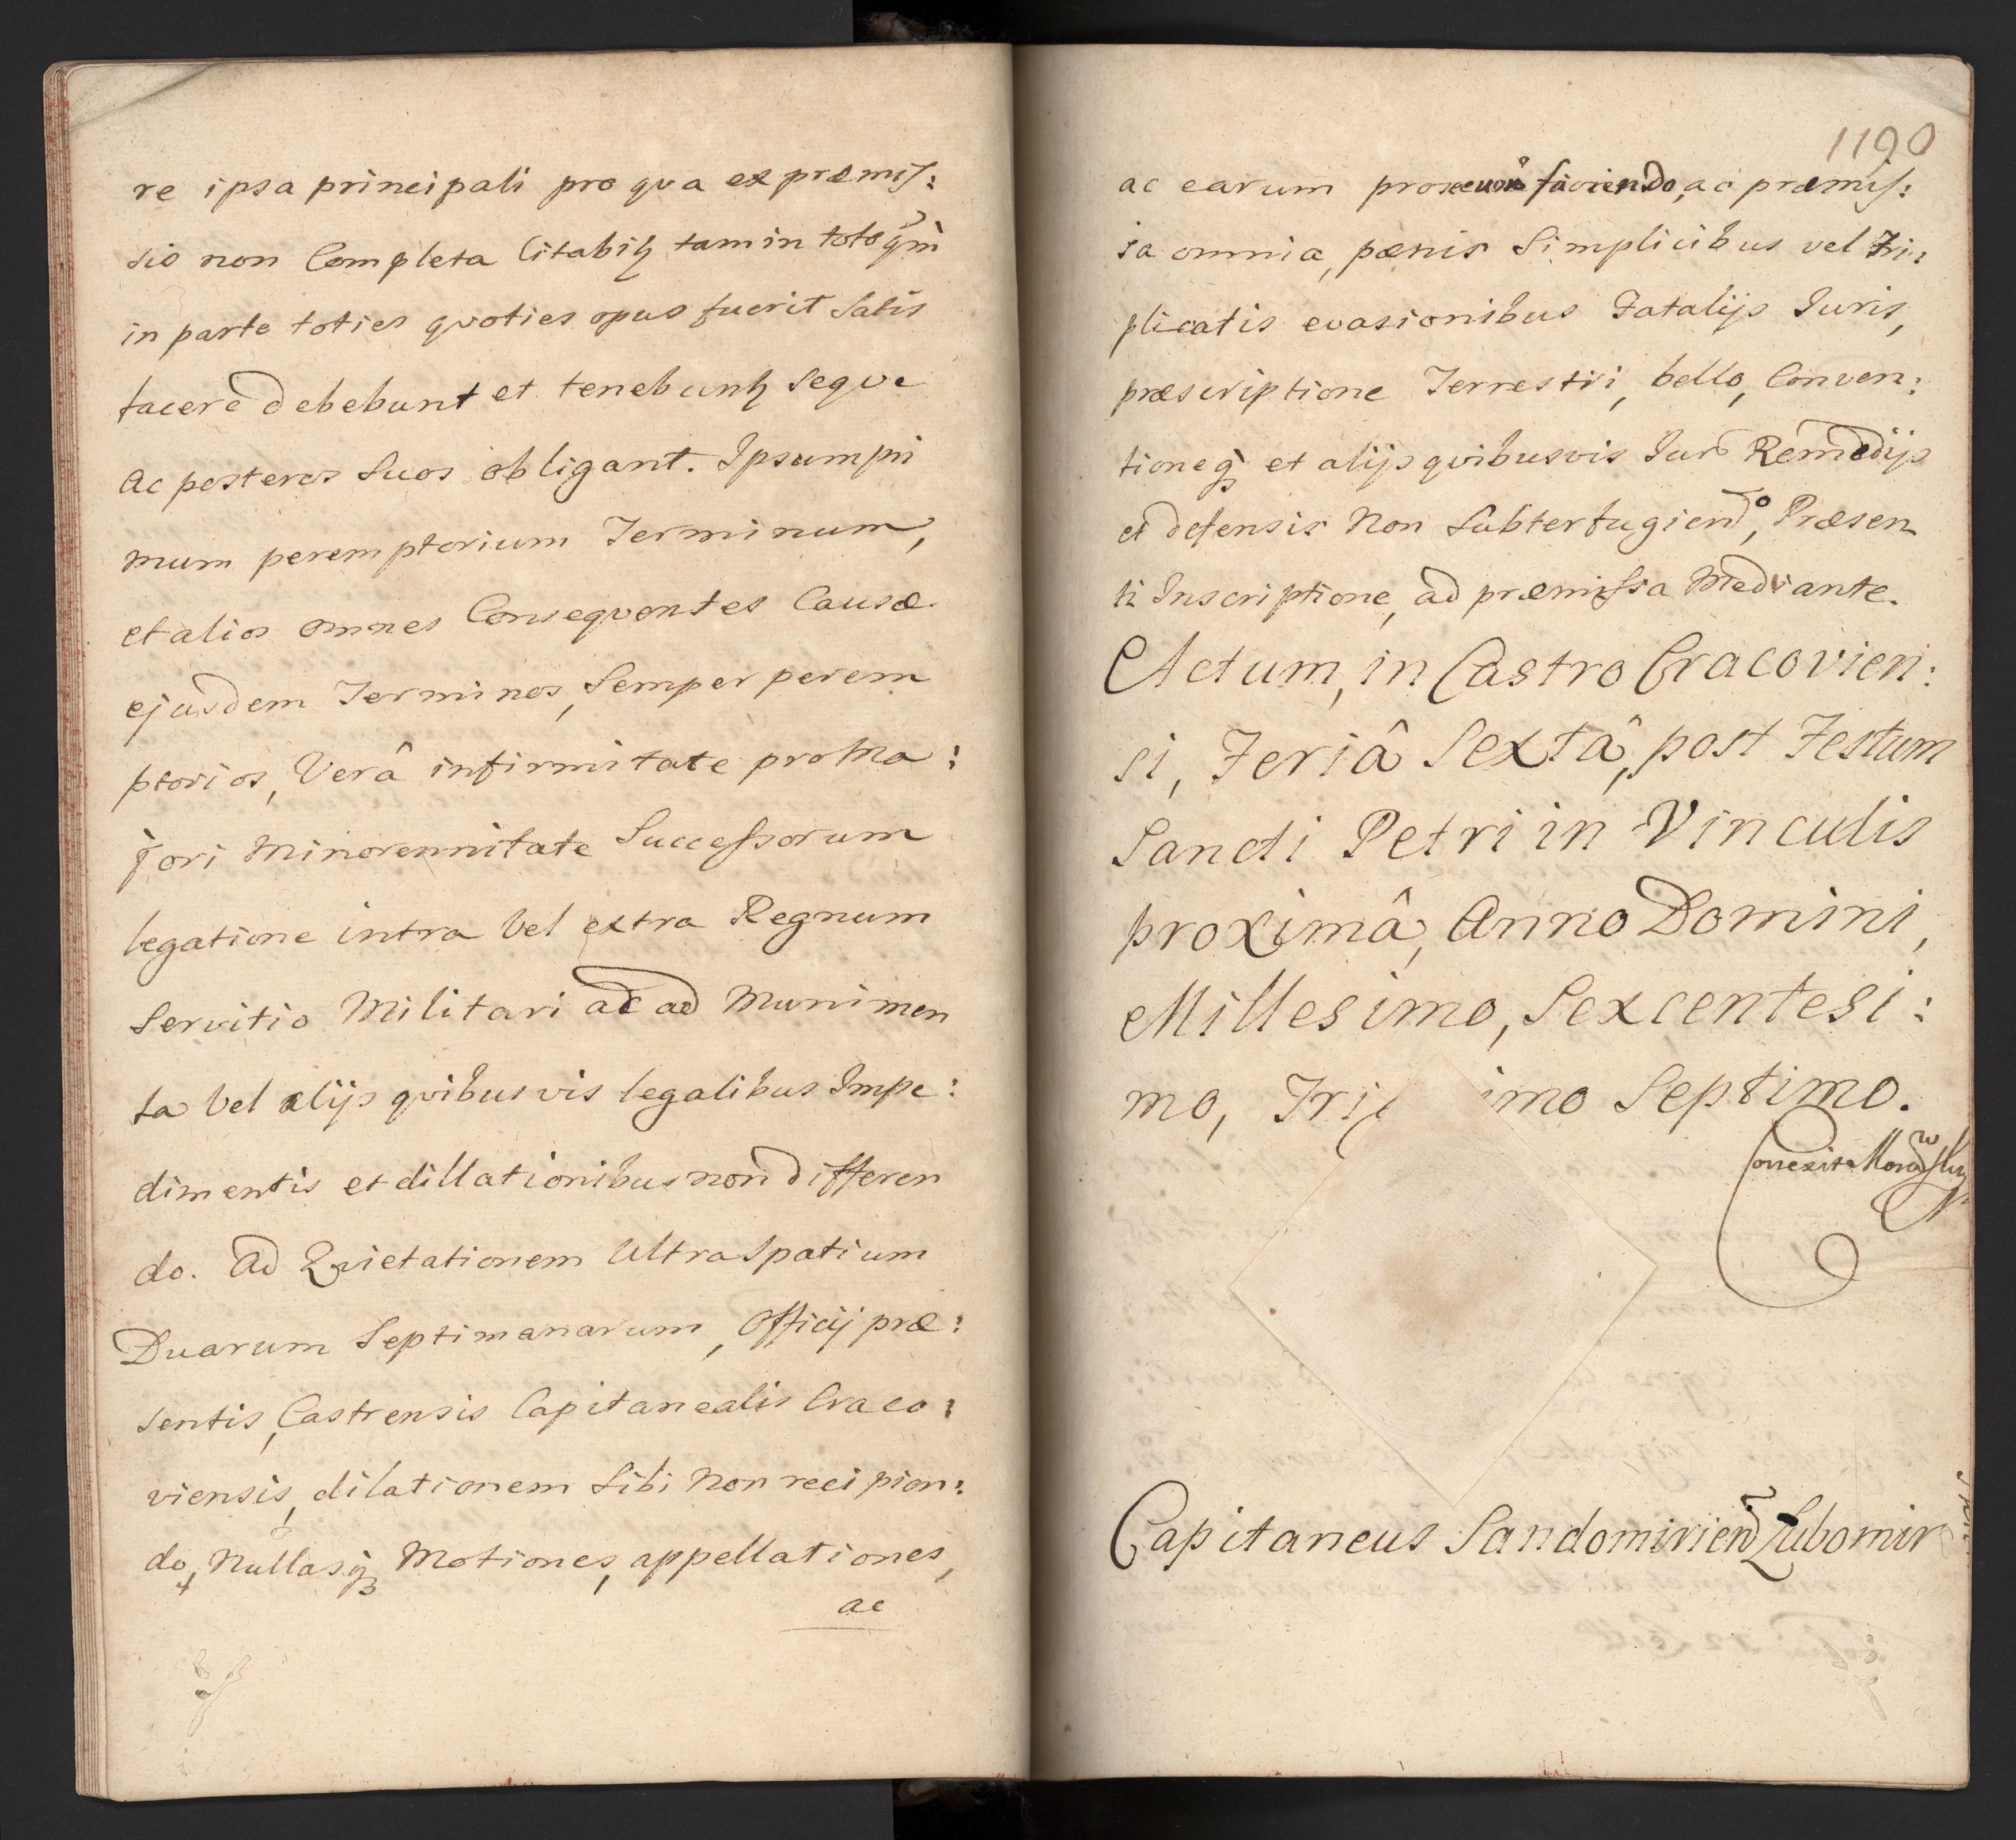 re ipsa principali pro qva ex præmis:
sio non Completa Citabitꝫ tam in toto qm̃
in parte toties qvoties opus fuerit Satis
facere debebunt et tenebuntꝫ Seqve
ac posteros Suos obligant. Ipsum pri
mum peremptorium Terminum,
et alios omnes Conseqventes Causæ
ejusdem Terminos, Semper perem
ptorios, Verâ infirmitate pro Ma:
jori Minorennitate Successorum
legatione intra vel extra Regnum
Servitio Militari ac ad Munimen
ta vel alijs qvibusvis legalibus Impe:
dimentis et dillationibus non differen
do. Ad Qvietationem Ultra Spatium
Duarum Septimanarum, Officij præ:
sentis, Castrensis Capitanealis Craco:
viensis, dilationem Sibi Non recipien:
do, Nullasqꝫ Motiones, appellationes,
ac
1190
ac earum faciendo, ac præmis:
sa omnia, pænis Simplicibus vel Tri:
plicatis evasionibus Fatalijs Iuris,
præscriptione Terrestri, bello, Conven:
tioneqꝫ et alijs qvibusvis Iur Remedijs
et defensis Non Subterfugiend°, Præsen
ti Inscriptione, ad præmissa Mediante.
Actum, in Castro Cracovien:
si, Feriâ Sextâ, post Festum
Sancti Petri in Vinculis
proximâ, Anno Domini,
Millesimo, Sexcentesi:
mo, Tri imo Septimo.
Correxit
Capitaneus Sandomirien Lubomir